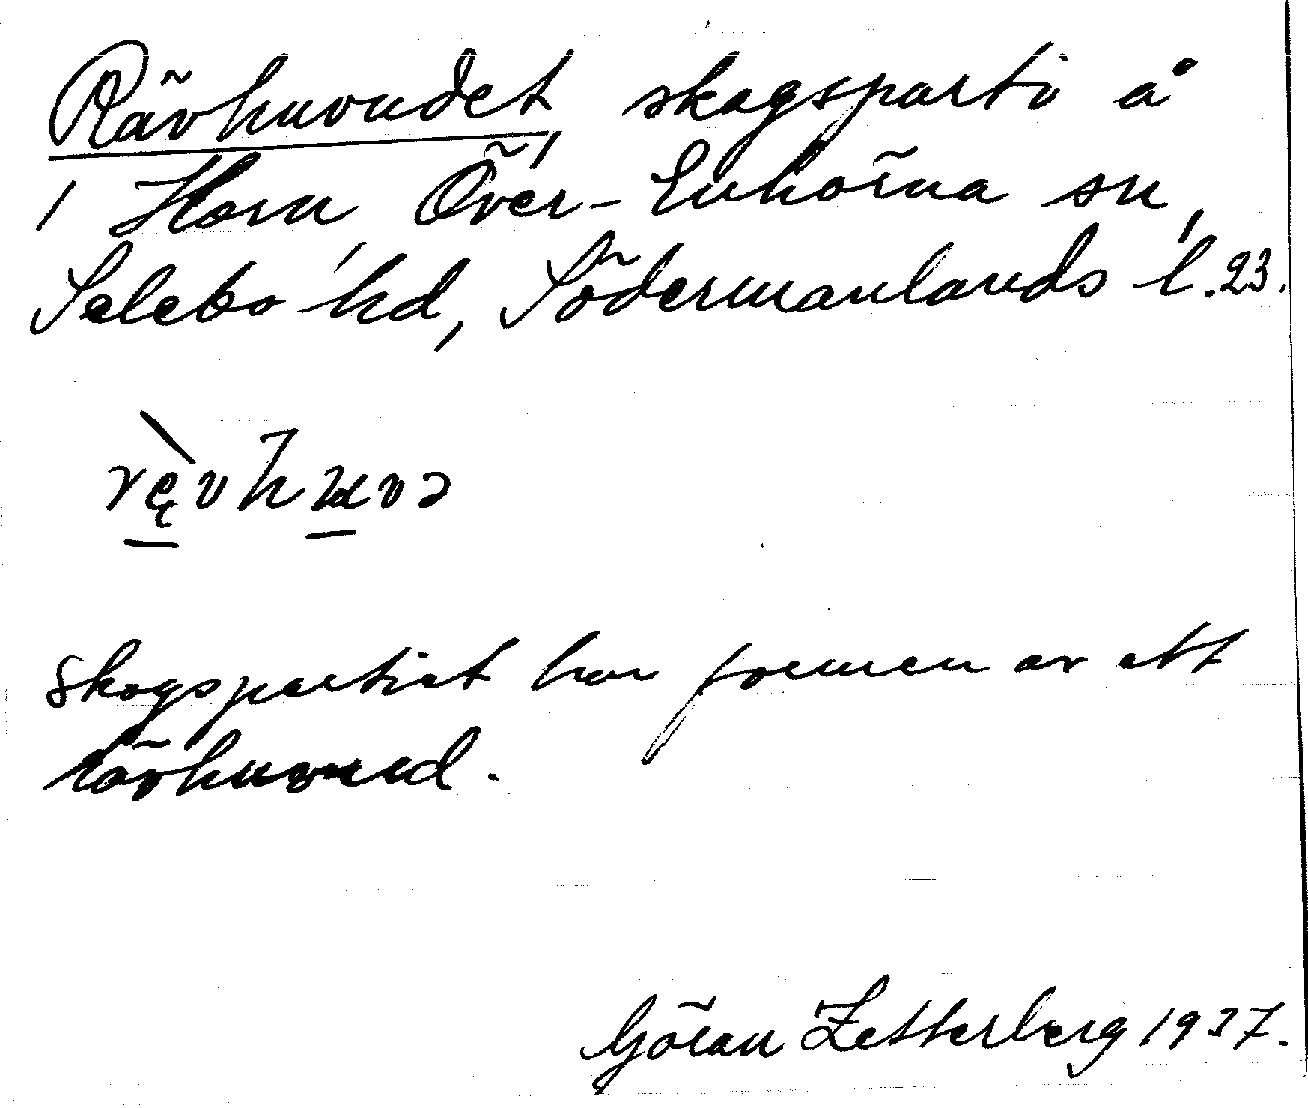 Rävhuvudet, skogsparti å
1 Horn Över-Enhörna sn,
Selebo hd, Södermanlands l. 23.
rę̀vhuvə
Skogspartiet har formen av ett
rävhuvud.
Göran Zetterberg 1937.